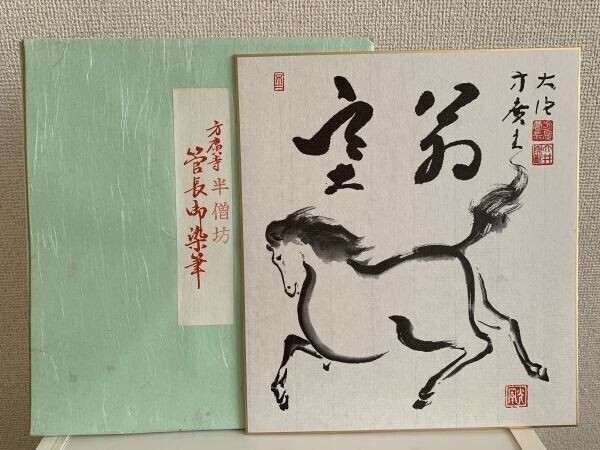 方廣寺 半僧坊
管長御染筆
塞翁
方廣主